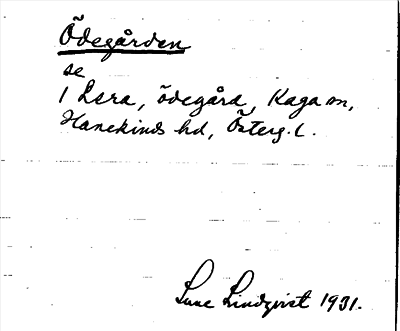 Ödegården
se
1 Lsra, ödegård, Kaga sn,
Hanekinds hd, Österg. l.
Sune Lindqvist 1931.